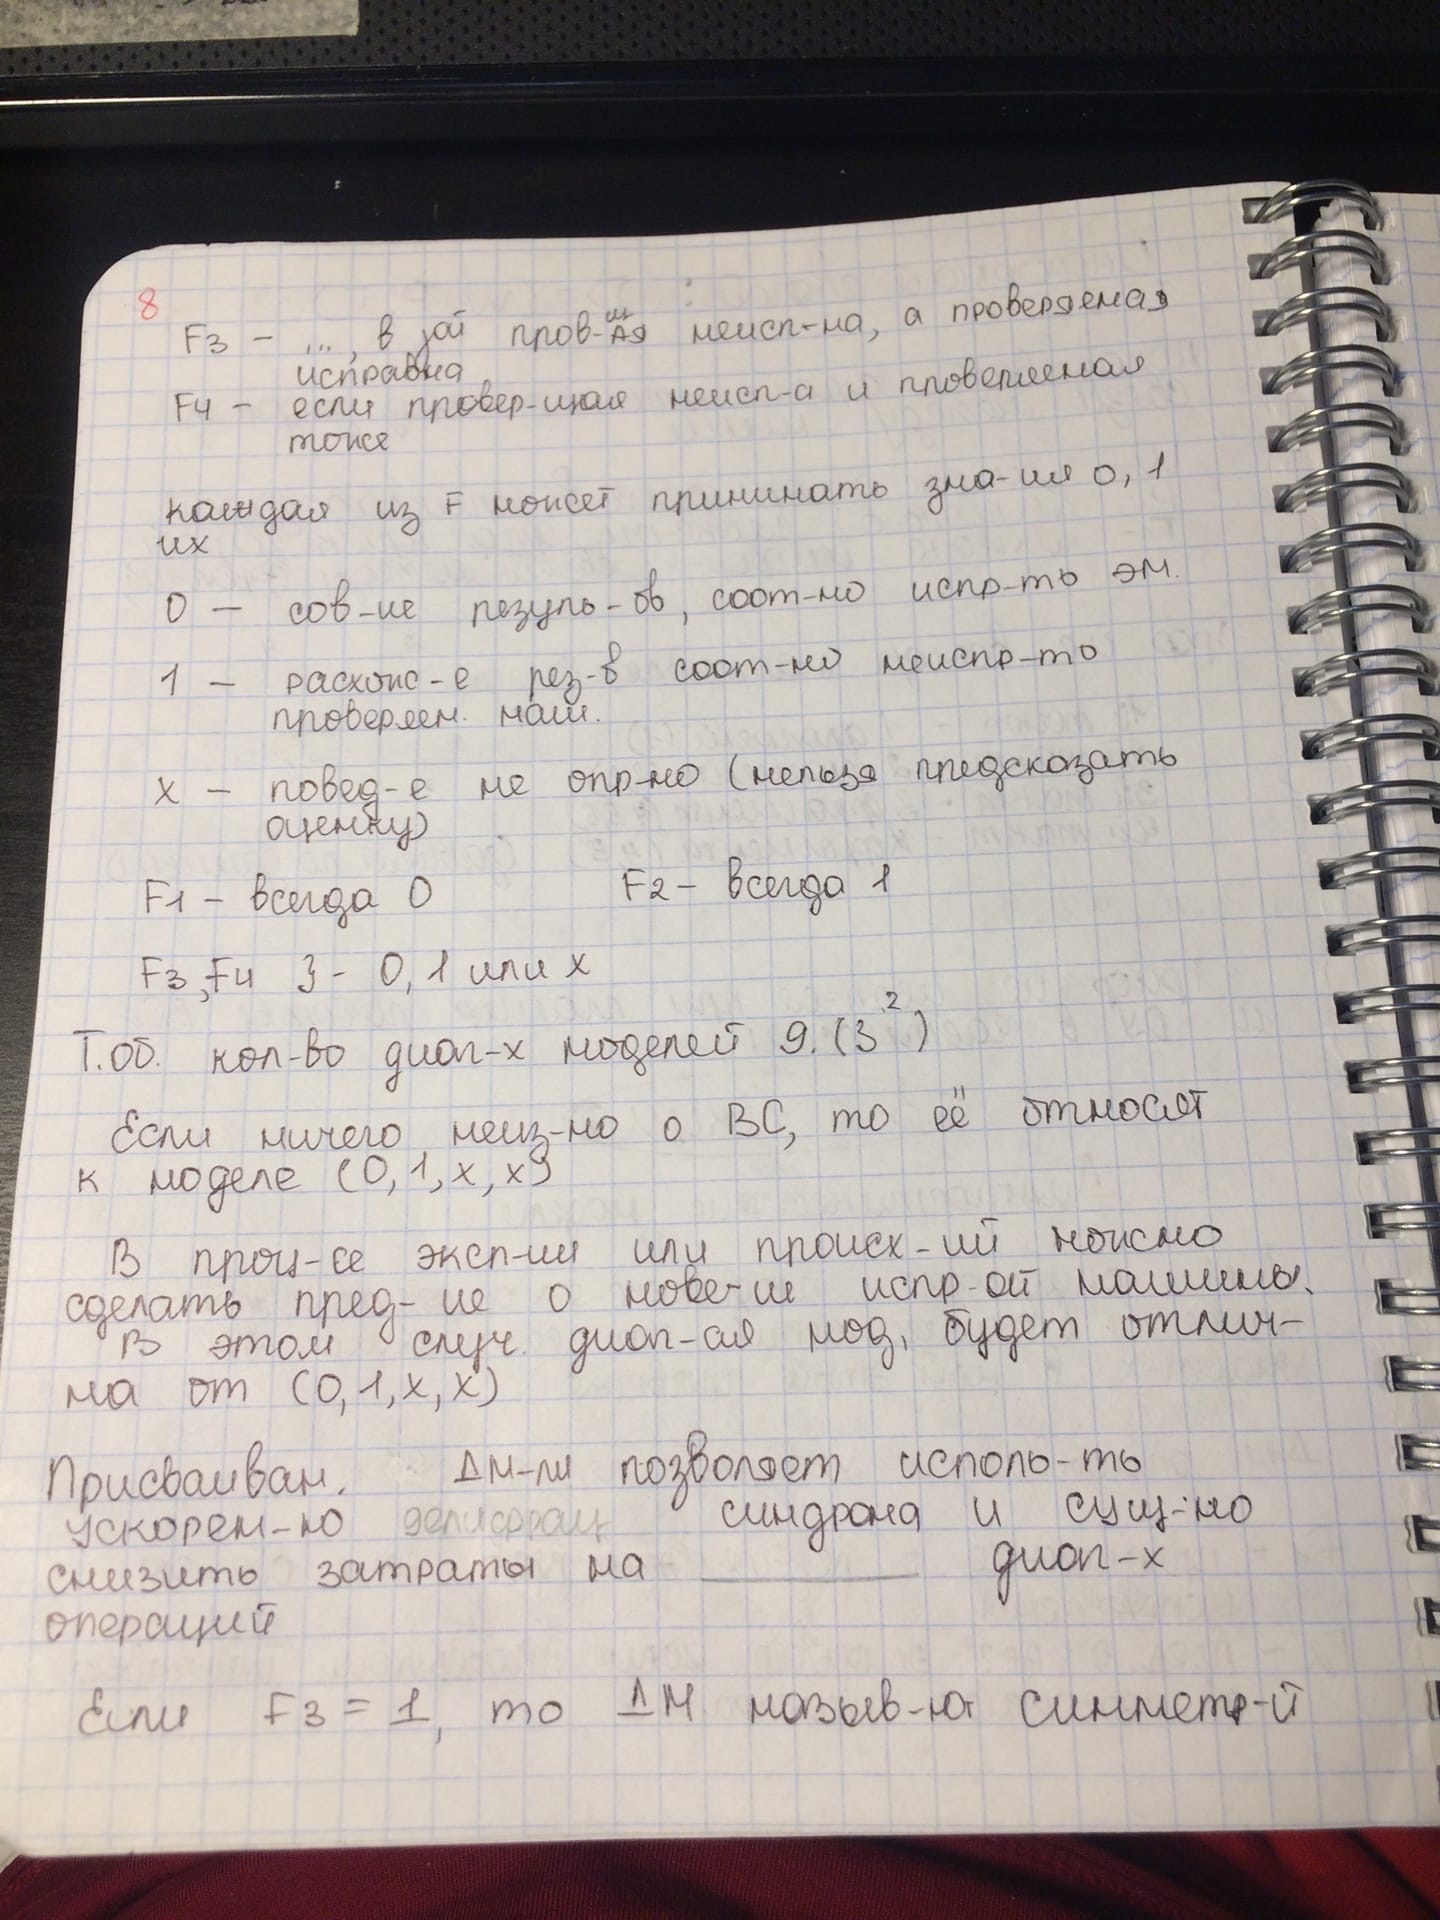 8
F3 – ..., в зой пров-щАя неисп-на, а проверяемая
исправна
F4 – если провер-щая неисп-а и проверяемая
тоже
каждая из F может принимать зна-ия 0, 1
их
0 – сов-ие резуль-ов, соот-но испр-ть эм.
1 – расхож-е рез-в соот-но неиспр-то
проверяем. маш.
x – повед-е не опр-но (нельзя предсказать
оценку)
F1 – всегда 0 F2 – всегда 1
F3, F4 } – 0, 1 или x
Т.об. кол-во диаг-х моделей 9. (3²)
Если ничего неиз-но о ВС, то её относят
к моделе (0, 1, x, x)
В проц-се эксп-ии или происх-ий можно
сделать пред-ие о пове-ии испр-ой машины.
В этом случ. диаг-ая мод. будет отлич-
на от (0, 1, x, x)
Присваиван. ДМ-ли позволяет исполь-ть
ускорен-но дешифрац синдрома и сущ-но
снизить затраты на ______ диаг-х
операций
Если F3 = 1, то ДМ назыв-ют симметр-й